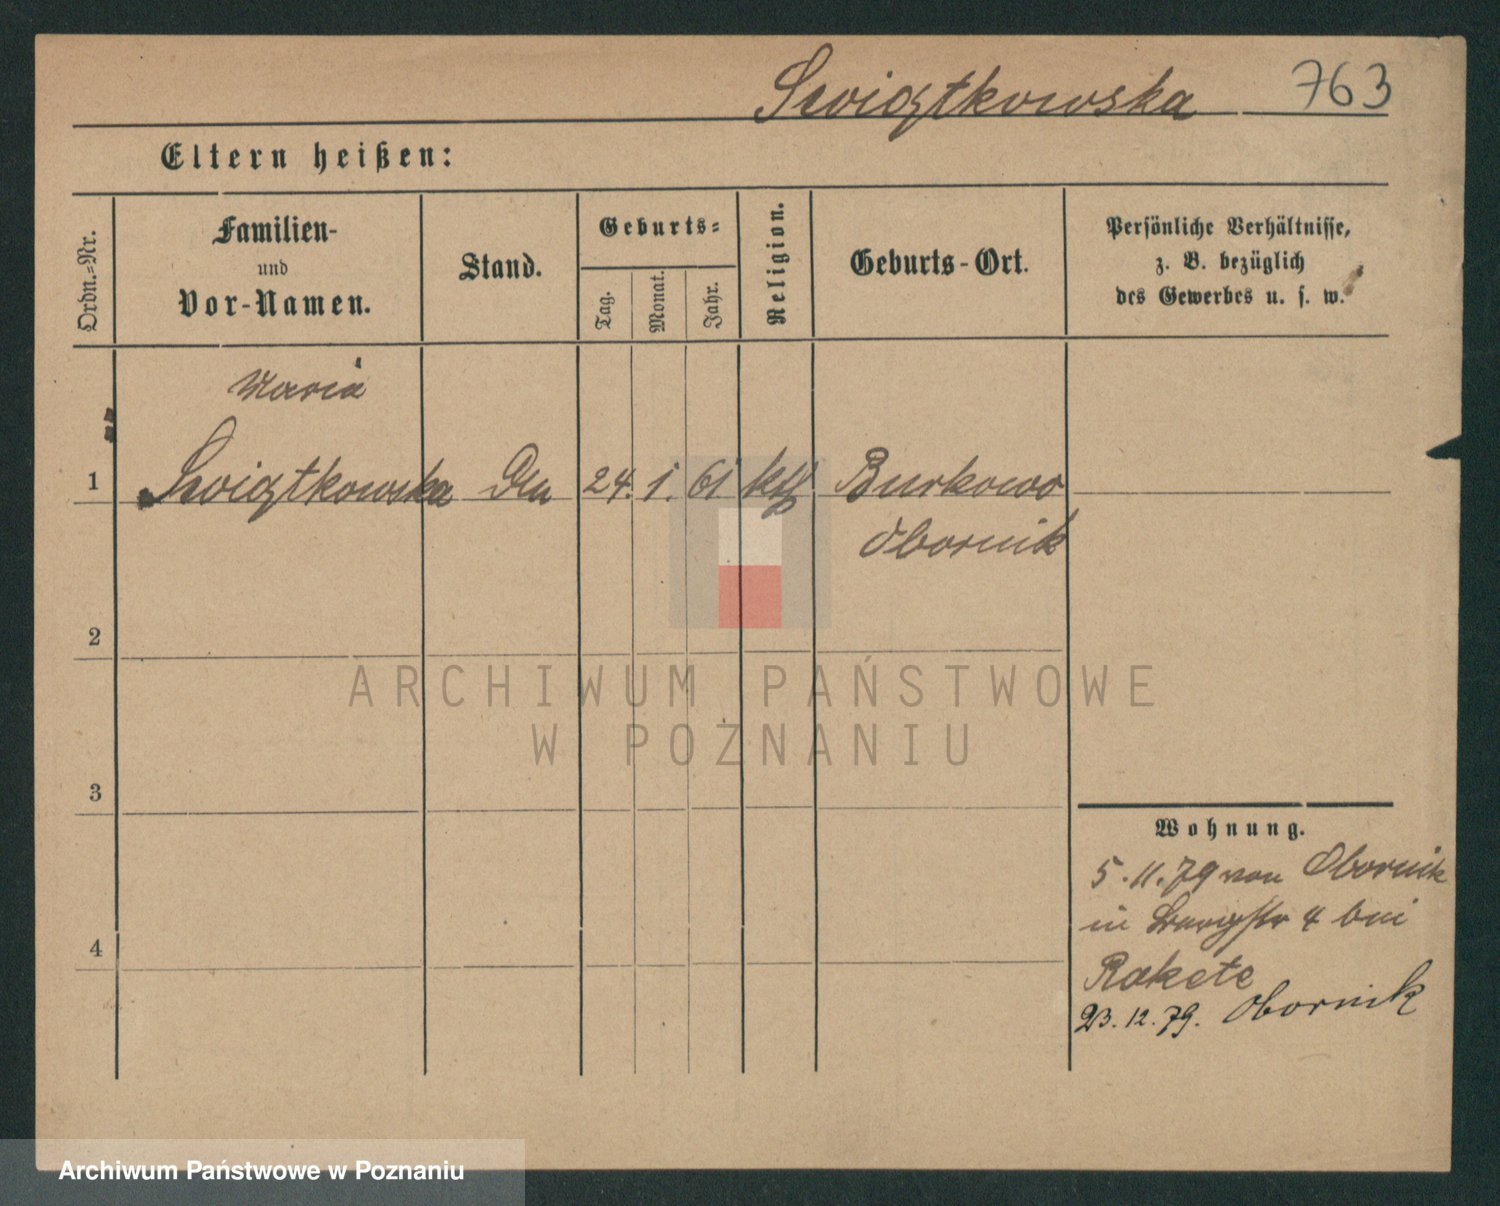 Swiątkowska 763
Eltern heißen:
Ordn.=Nr.
Familien-
und
Vor-Namen.
Stand.
Geburts=
Tag.
Monat.
Jahr.
Religion.
Geburts-Ort.
Persönliche Verhältnisse,
z. B. bezüglich
des Gewerbes u. s. w.
Maria
1 Swiątkowska 24. 1. 61 kth Burkowo
Obornik
2
ARCHIWUM PAŃSTWOWE
W POZNANIU
3
4
Wohnung.
5.11.79 von Obornik
in 4 bei
Rakete
23.12.79. Obornik
Archiwum Państwowe w Poznaniu